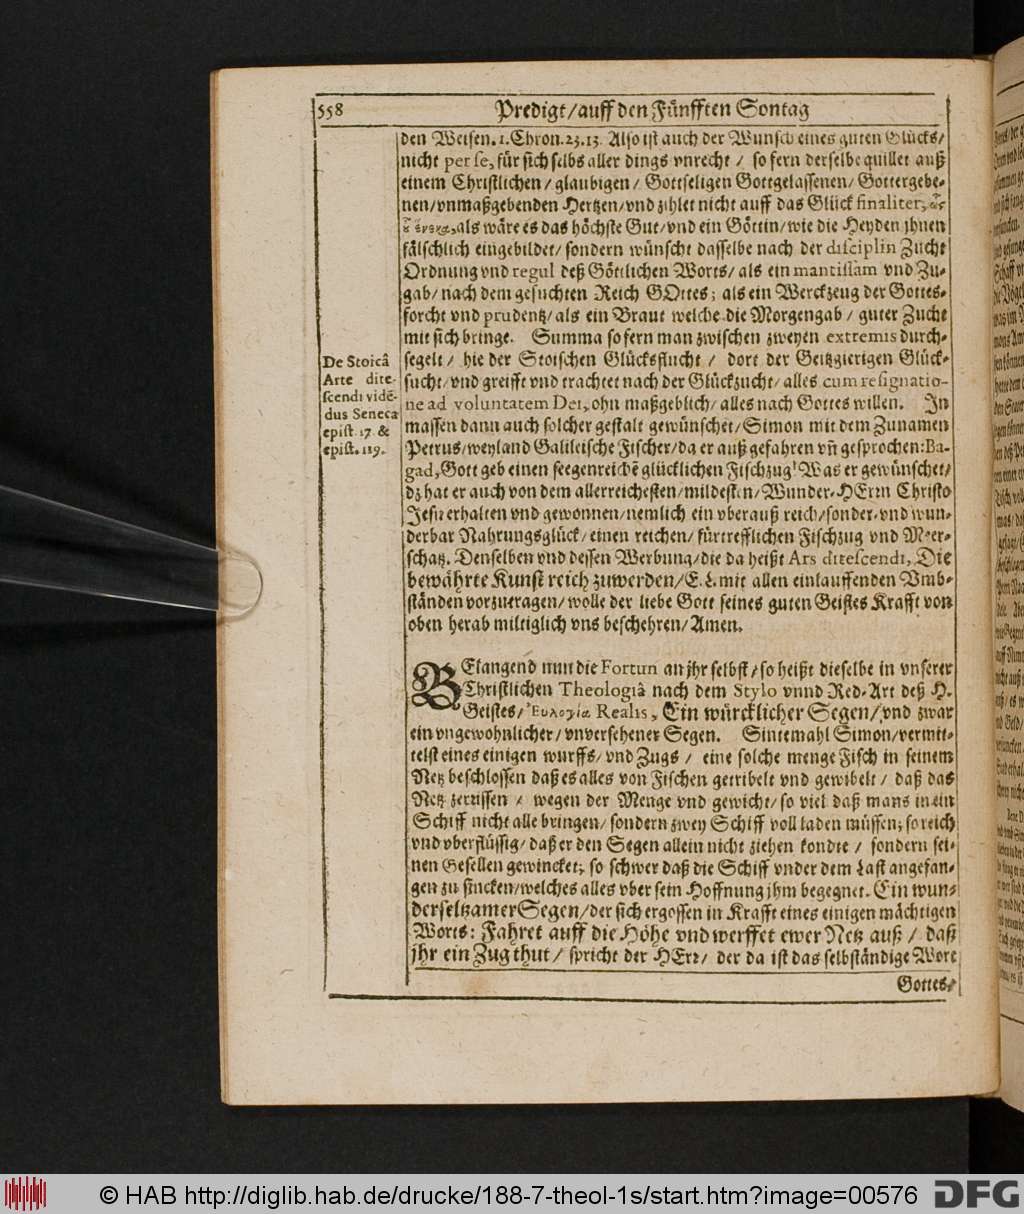 558
Predigt/ auff den Fünfften Sontag
den Weisen. 1. Chron. 23. 13. Also ist auch der Wunsch eines guten Glücks/
nicht per se, für sich selbs aller dings vnrecht / so fern derselbe quillet auß
einem Christlichen/ glaubigen/ Gottseligen Gottgelassenen/ Gottergebe-
nen/ vnmaßgebenden Hertzen/ vnd zihlet nicht auff das Glück finaliter,
als wäre es das höchste Gut/ vnd ein Göttin/ wie die Heyden jhnen
fälschlich eingebildet/ sondern wünscht dasselbe nach der disciplin Zucht
Ordnung vnd regul deß Göttlichen Worts/ als ein mantissam vnd Zu-
gab/ nach dem gesuchten Reich GOttes; als ein Werckzeug der Gottes-
forcht vnd prudentz/ als ein Braut welche die Morgengab / guter Zucht
mit sich bringe. Summa so fern man zwischen zweyen extremis durch-
segelt / hie der Stoischen Glücksflucht / dort der Geitzgierigen Glück-
sucht/ vnd greifft vnd trachtet nach der Glückzucht/ alles cum resignatio-
ne ad voluntatem Dei, ohn maßgeblich/ alles nach Gottes willen. In
massen dann auch solcher gestalt gewünschet/ Simon mit dem Zunamen
Petrus/ weyland Galileische Fischer/ da er auß gefahren vñ gesprochen: Ba-
gad, Gott geb einen seegenreichẽ glücklichen Fischzug! Was er gewünschet/
dz hat er auch von dem allerreichesten/ mildesten/ Wunder-HErrn Christo
Jesu erhalten vnd gewonnen/ nemlich ein vberauß reich/ sonder- vnd wun-
derbar Nahrungsglück/ einen reichen/ fürtrefflichen Fischzug vnd Meer-
schatz. Denselben vnd dessen Werbung/ die da heißt Ars ditescendi, Die
bewährte Kunst reich zuwerden/ E. L. mit allen einlauffenden Vmb-
ständen vorzutragen/ wolle der liebe Gott seines guten Geistes Krafft von
oben herab miltiglich vns beschehren/ Amen.
De Stoicâ
Arte dite-
scendi vidẽ-
dus Seneca
epist. 17. &
epist. 119.
BElangend nun die Fortun an jhr selbst/ so heißt dieselbe in vnserer
Christlichen Theologiâ nach dem Stylo vnnd Red-Art deß H.
Geistes/ Ευλογία Realis, Ein würcklicher Segen/ vnd zwar
ein vngewohnlicher/ vnversehener Segen. Sintemahl Simon/ vermit-
telst eines einigen wurffs/ vnd Zugs / eine solche menge Fisch in seinem
Netz beschlossen daß es alles von Fischen getribelt vnd gewibelt / daß das
Netz zerrissen / wegen der Menge vnd gewicht/ so viel daß mans in ein
Schiff nicht alle bringen/ sondern zwey Schiff voll laden müssen; so reich
vnd vberflüssig/ daß er den Segen allein nicht ziehen kondte / sondern sei-
nen Gesellen gewincket; so schwer daß die Schiff vnder dem Last angefan-
gen zu sincken/ welches alles vber sein Hoffnung jhm begegnet. Ein wun-
derseltzamer Segen/ der sich ergossen in Krafft eines einigen mächtigen
Worts: Fahret auff die Höhe vnd werffet ewer Netz auß / daß
jhr ein Zug thut/ spricht der HErr/ der da ist das selbständige Wort
Gottes/
© HAB http://diglib.hab.de/drucke/188-7-theol-1s/start.htm?image=00576
DFG